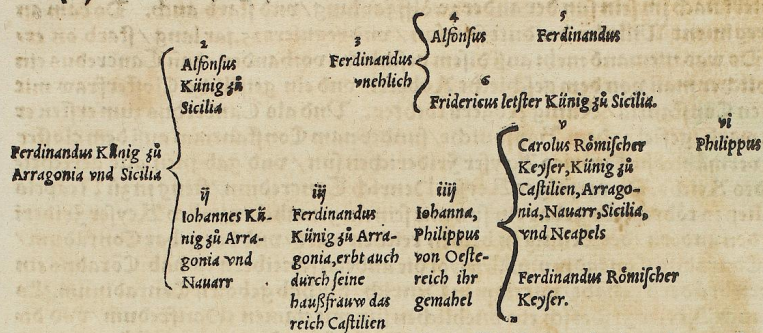 Ferdinandus Künig zů
Arragonia vnd Sicilia
2
Alfonsus
Künig zů
Sicilia
3
Ferdinandus
vnehlich
4
Alfonsus
5
Ferdinandus
6
Fridericus letster Künig zů Sicilia.
ij
Iohannes Kü-
nig zů Arra-
gonia vnd
Nauarr
iij
Ferdinandus
Künig zů Arra-
gonia, erbt auch
durch seine
haußfrauw das
reich Castilien
iiij
Iohanna,
Philippus
von Oeste-
reich ihr
gemahel
v
Carolus Rőmischer
Keyser, Künig zů
Castilien, Arrago-
nia, Nauarr, Sicilia,
vnd Neapels
Ferdinandus Rőmischer
Keyser.
vi
Philippus